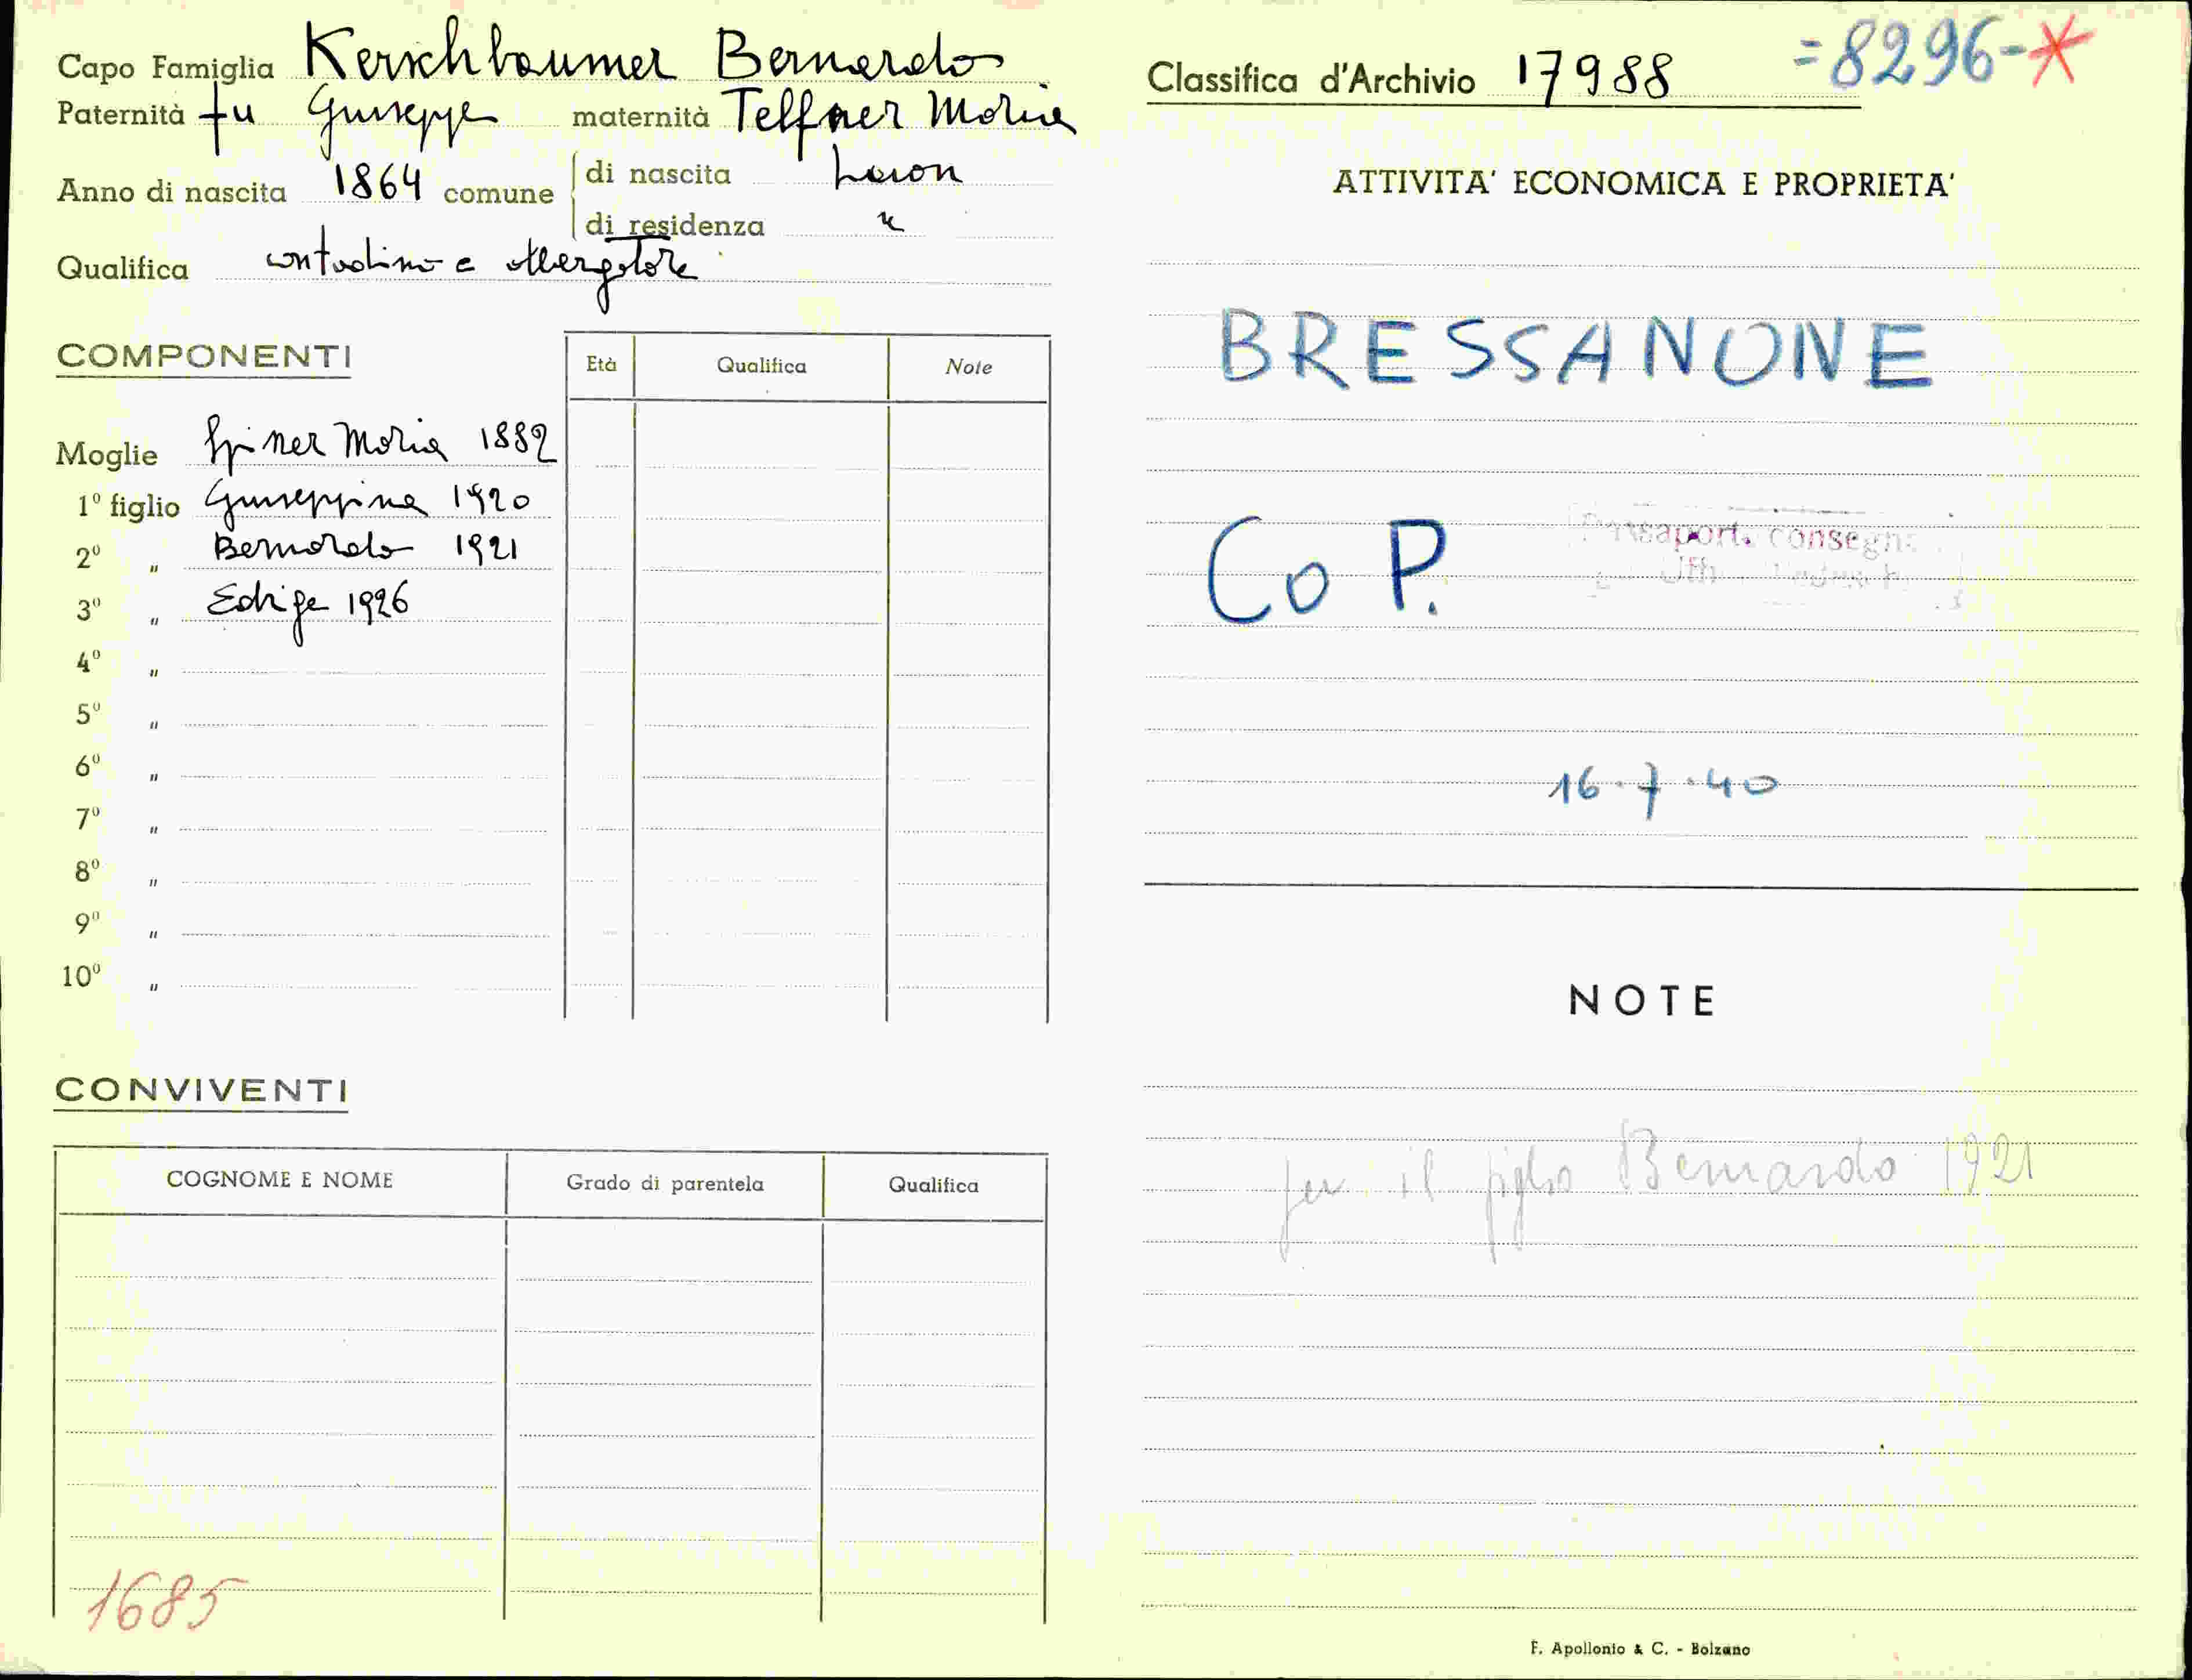 Capo Famiglia Kerschbaumer Bernardo
Paternità fu Giuseppe maternità Telfner Maria
Anno di nascita 1864 comune di nascita Luson
di residenza "
Qualifica contadino e albergatore
COMPONENTI
Età Qualifica Note
Moglie Maria 1882
1º figlio Giuseppina 1920
2º " Bernardo 1921
3º " Edvige 1926
4º "
5º "
6º "
7º "
8º "
9º "
10º "
CONVIVENTI
COGNOME E NOME Grado di parentela Qualifica
1685
Classifica d'Archivio 17988 =8296-*
ATTIVITA' ECONOMICA E PROPRIETA'
BRESSANONE
Co P.
16.7.40
NOTE
per il figlio Bernardo 1921
F. Apollonio & C. - Bolzano